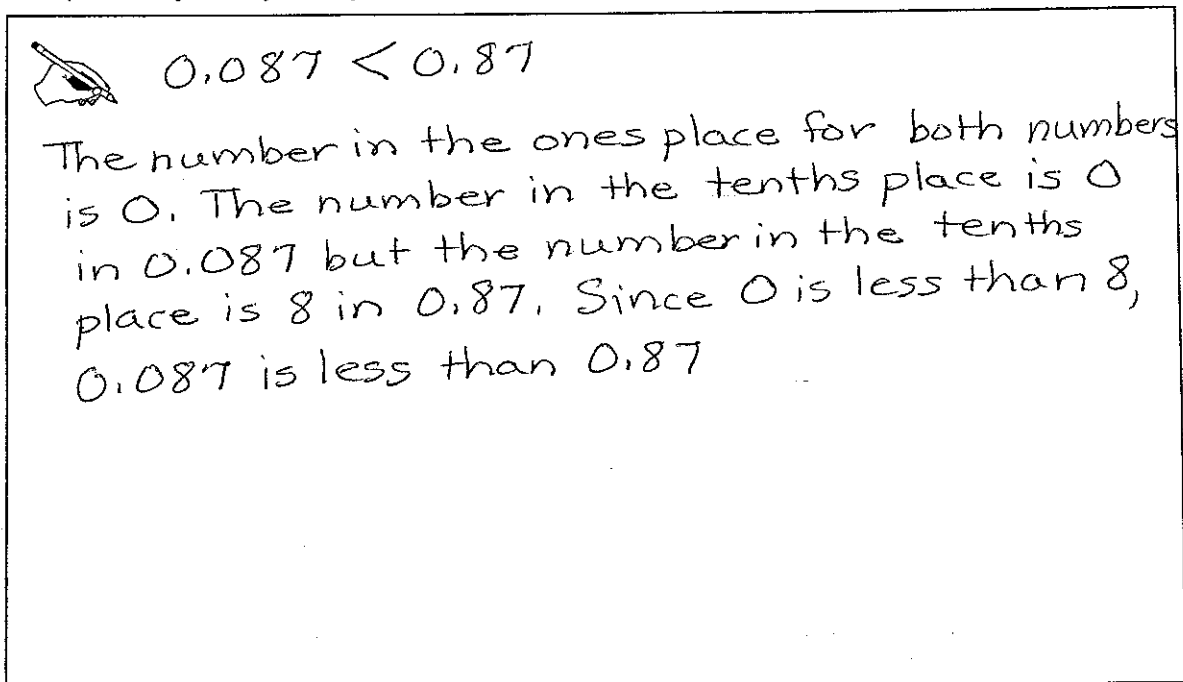 0.087 < 0.87
The number in the ones place for both numbers
is 0. The number in the tenths place is 0
in 0.087 but the number in the tenths
place is 8 in 0.87. Since 0 is less than 8,
0.087 is less than 0.87